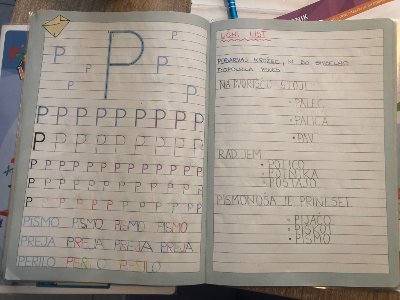 P
P
P
P
P
P
P
P P P P P P P P P P
P P P P P P P P P P
P P P P P P P P P P P P
P P P P P P P P P P P P
P P P P P P P P P P P P
PISMO PISMO PISMO PISMO
PREJA PREJA PREJA PREJA
PERILO PERILO PERILO
UČNI LIST
POBARVAJ KROŽEC, KI BO SMISELNO
DOPOLNILA POVED.
NA DVORIŠČU STOJI
• PALEC.
• PALICA.
• PAV.
RAD JEM
• POTICO.
• POTNIKA.
• POSTAJO.
PISMONOŠA JE PRINESEL
• PIJAČO.
• PIŠKOT.
• PISMO.